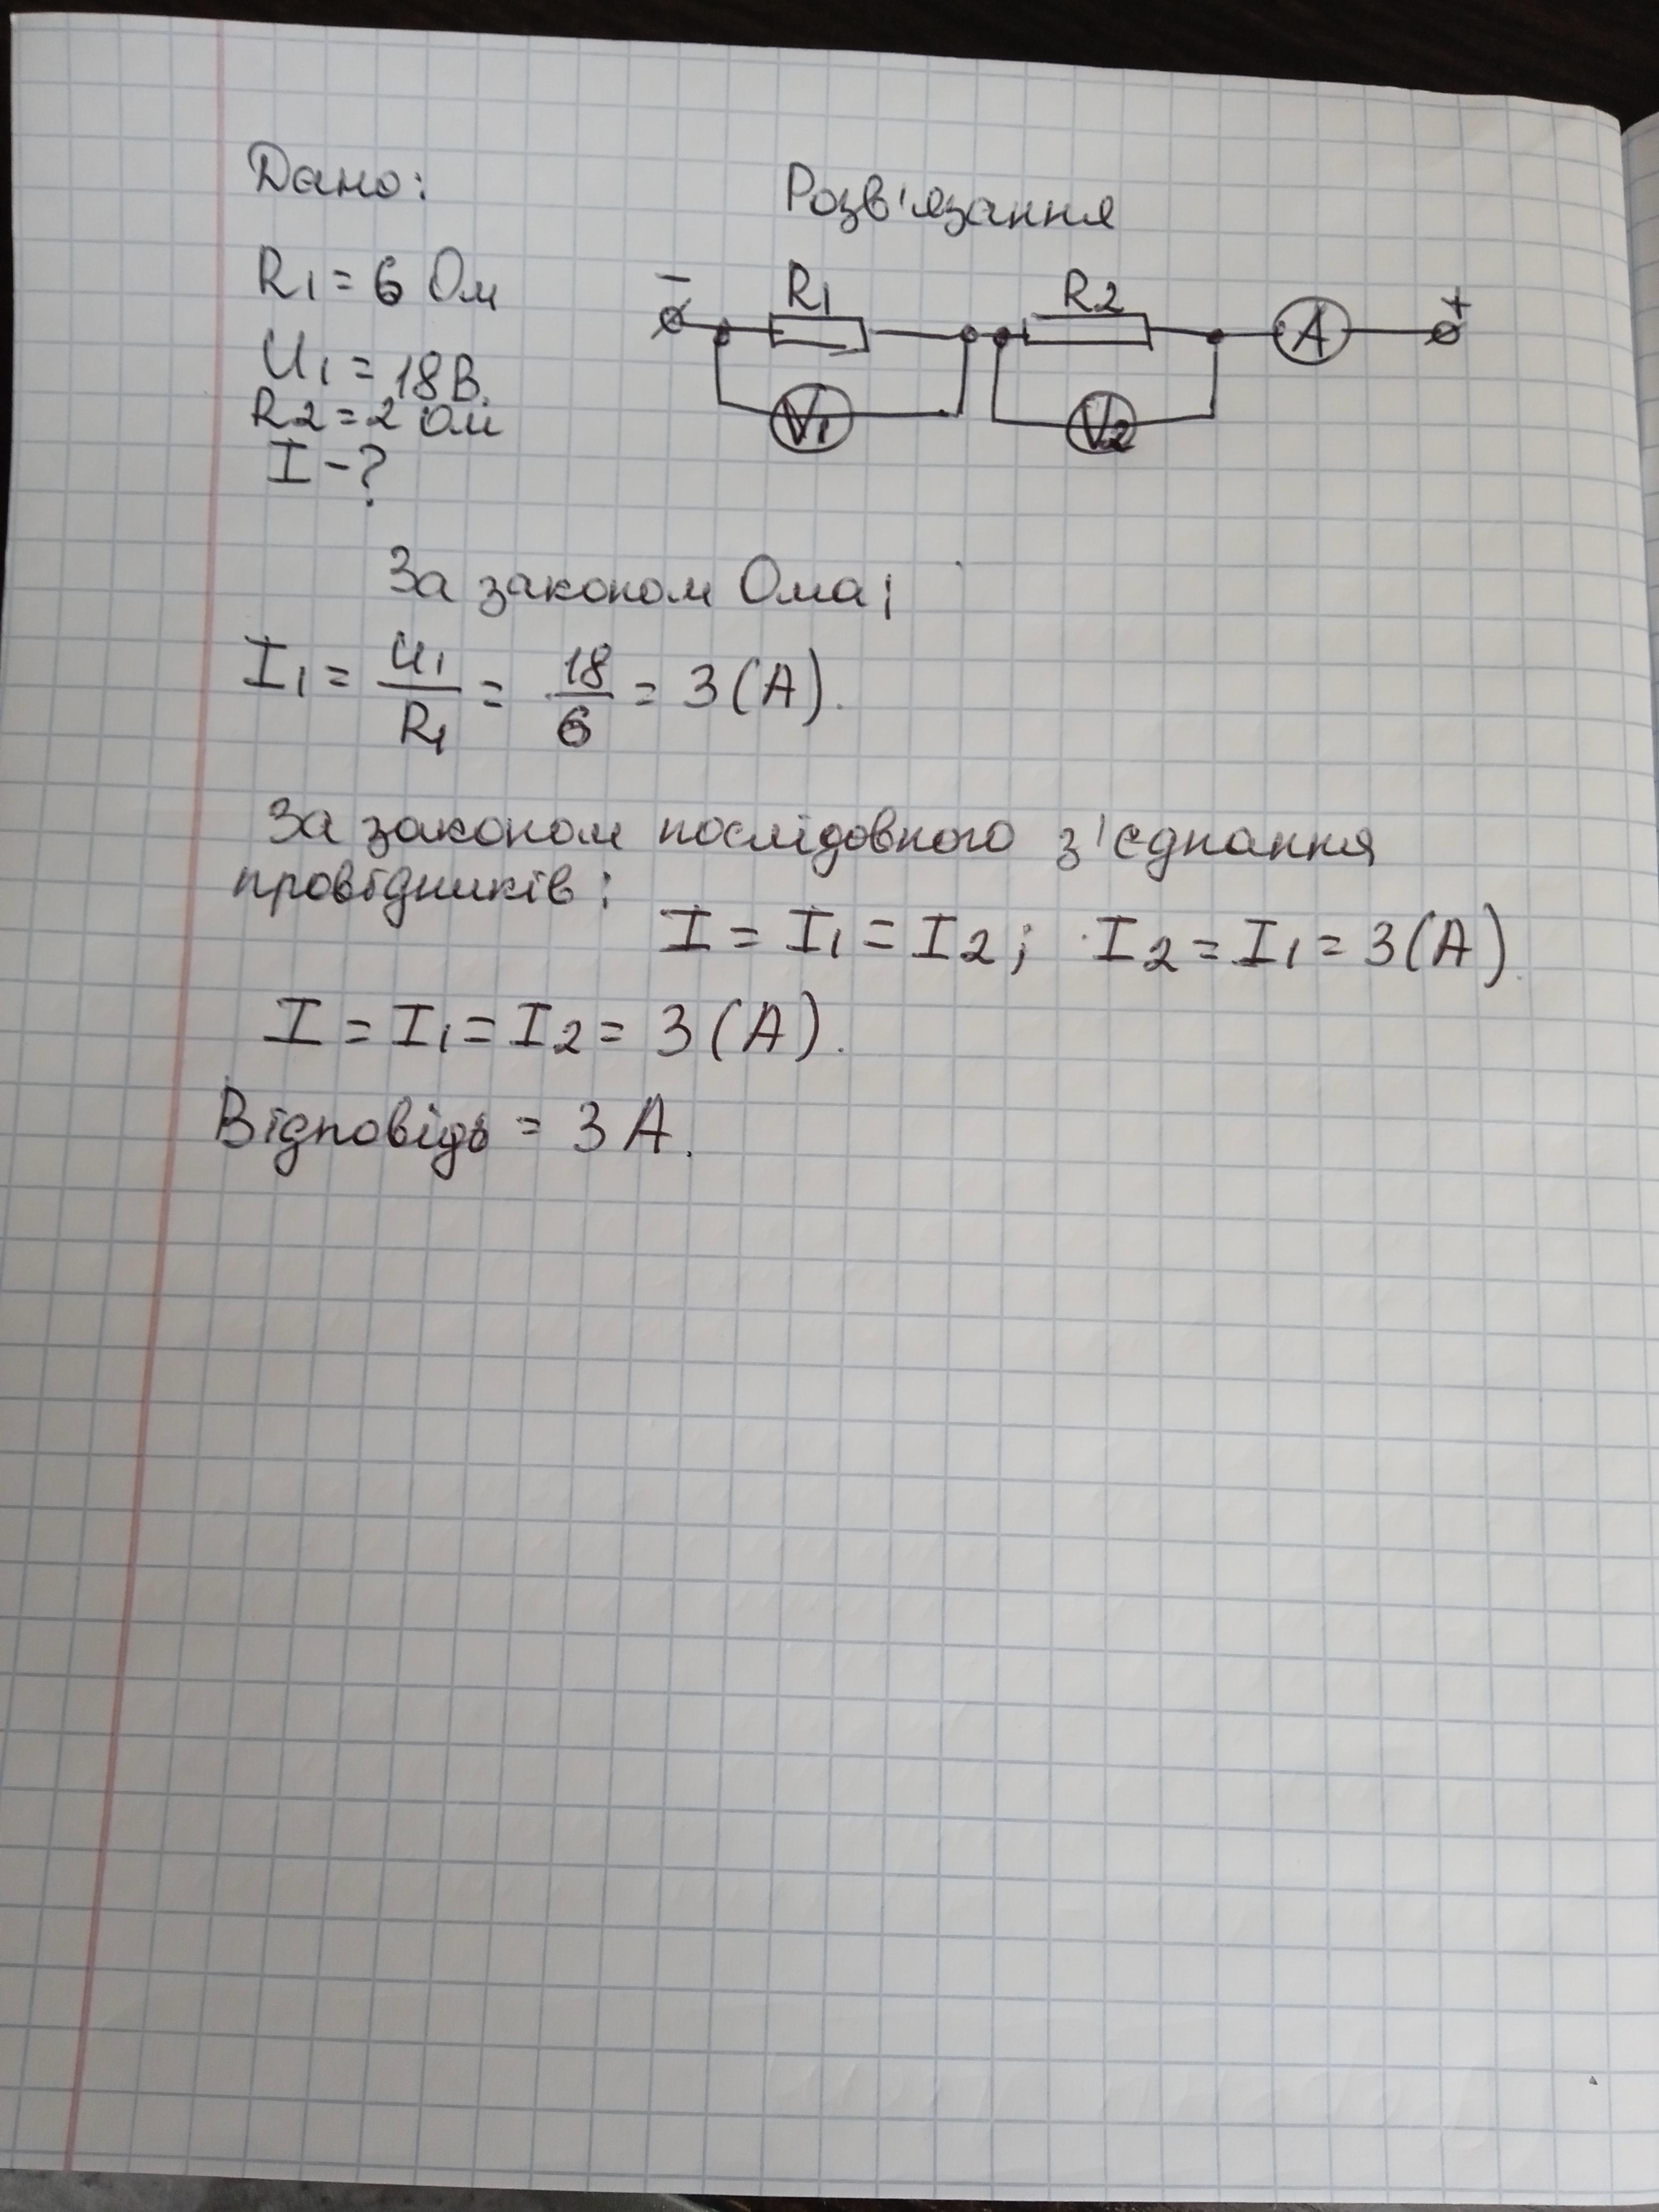 Дано:
Розв'язання
R1 = 6 Ом
U1 = 18 В.
R2 = 2 Ом
I - ?
- R1 R2 A +
V1 V2
За законом Ома;
I1 = U1/R1 = 18/6 = 3 (А).
За законом послідовного з'єднання
провідників:
I = I1 = I2; I2 = I1 = 3 (А).
I = I1 = I2 = 3 (А).
Відповідь = 3 А.